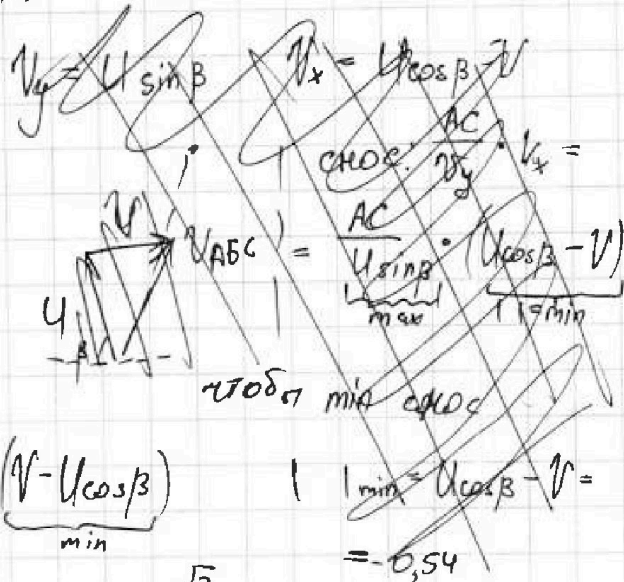 Vy = U sin β    Vx = U cos β - V
снос: AC/Vy · Vx =
V
VАБС = AC/(U sin β) · (U cos β - V)
U
max
| | = min
β
чтобы min снос
(V - U cos β)
min
| |min = U cos β - V =
= -0,54